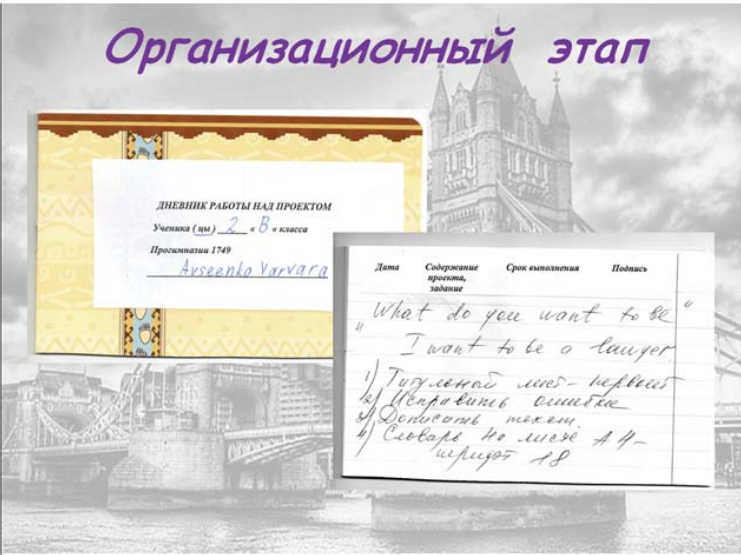 Организационный этап
ДНЕВНИК РАБОТЫ НАД ПРОЕКТОМ
Ученика ( цы ) 2 « В « класса
Прогимназии 1749
Avseenko Varvara
Дата Содержание проекта, задание Срок выполнения Подпись
"What do you want to be"
I want to be a lawyer
1) Титульной лист - первый
2) Исправить ошибки
3) Дописать текст.
4) Словарь на листе А4 -
шрифт 18